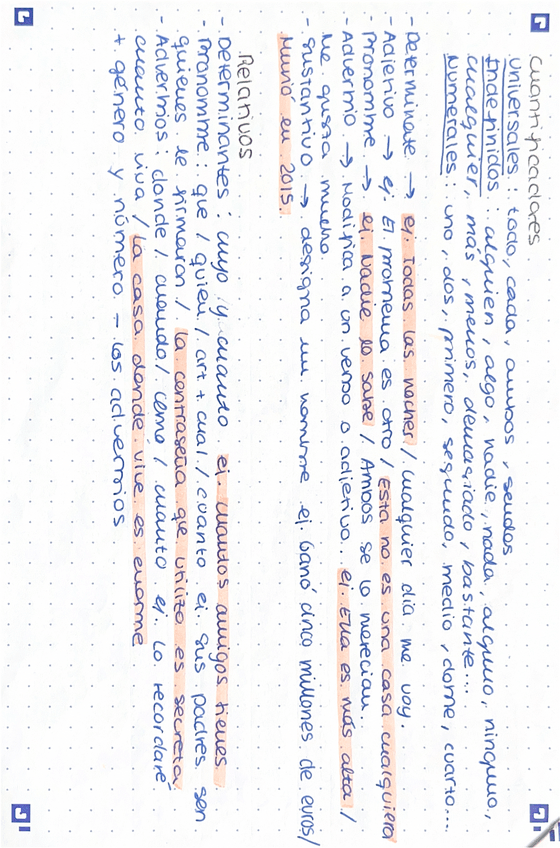 Cuantificadores
Universales: todo, cada, ambos, sendos
Indefinidos: alguien, algo, nadie, nada, alguno, ninguno,
cualquier, más, menos, demasiado, bastante...
Numerales: uno, dos, primero, segundo, medio, doble, cuarto...
- Determinate → ej: Todas las noches / Cualquier día me voy
- Adjetivo → ej: El problema es otro / Esta no es una casa cualquiera
- Pronombre → ej. Nadie lo sabe / Ambos se lo merecían.
- Adverbio → Modifica a un verbo o adjetivo. ej. Ella es más alta /
Me gusta mucho
- Sustantivo → designa un nombre ej Ganó cinco millones de euros /
Murió en 2015.
Relativos
- Determinantes: cuyo y cuanto ej. cuantos amigos tienes
- Pronombre: que / quien / art + cual / cuanto ej sus padres son
quienes le firmaron / la contraseña que utilizo es secreta
- Adverbios: donde / cuando / como / cuanto ej. Lo recordaré
cuanto viva / la casa donde vive es enorme
+ género y número - los adverbios